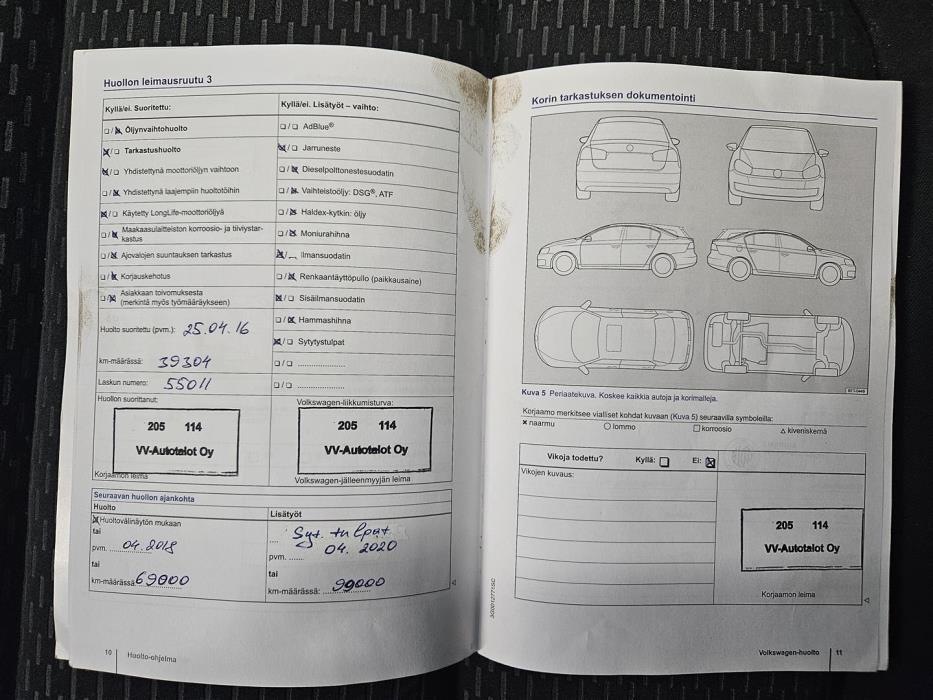 Huollon leimausruutu 3
Kyllä/ei. Suoritettu:
Öljynvaihtohuolto
Tarkastushuolto
Yhdistettynä moottoriöljyn vaihtoon
Yhdistettynä laajempiin huoltotöihin
Käytetty LongLife-moottoriöljyä
Maakaasulaitteiston korroosio- ja tiiviystar-
kastus
Ajovalojen suuntauksen tarkastus
Korjauskehotus
Asiakkaan toivomuksesta
(merkintä myös työmääräykseen)
Huolto suoritettu (pvm.): 25.04.16
km-määrässä: 39304
Laskun numero: 55011
Huollon suorittanut:
205 114
VV-Autotalot Oy
Korjaamon leima
Kyllä/ei. Lisätyöt – vaihto:
AdBlue®
Jarruneste
Dieselpolttonestesuodatin
Vaihteistoöljy: DSG®, ATF
Haldex-kytkin: öljy
Moniurahihna
Ilmansuodatin
Renkaantäyttöpullo (paikkausaine)
Sisäilmansuodatin
Hammashihna
Sytytystulpat
Volkswagen-liikkumisturva:
205 114
VV-Autotalot Oy
Volkswagen-jälleenmyyjän leima
Seuraavan huollon ajankohta
Huolto
Huoltovälinäytön mukaan
tai
pvm. 04.2018
tai
km-määrässä: 69000
Lisätyöt
Syt. tulpat
pvm. 04. 2020
tai
km-määrässä: 99000
10 Huolto-ohjelma
Korin tarkastuksen dokumentointi
Kuva 5 Periaatekuva. Koskee kaikkia autoja ja korimalleja.
Korjaamo merkitsee vialliset kohdat kuvaan (Kuva 5) seuraavilla symboleilla:
× naarmu ○ lommo □ korroosio △ kiveniskemä
Vikoja todettu? Kyllä: Ei:
Vikojen kuvaus:
205 114
VV-Autotalot Oy
Korjaamon leima
Volkswagen-huolto 11